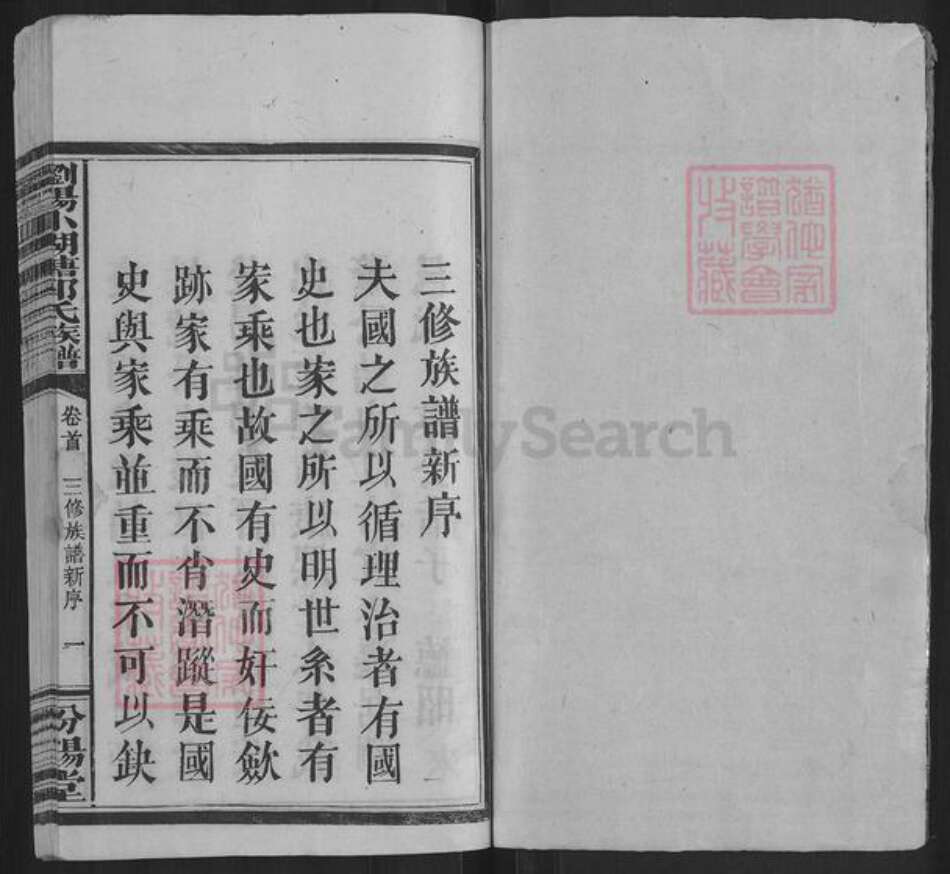 三修族譜新序
夫國之所以循理治者有國
史也家之所以明世系者有
家乘也故國有史而奸佞歛
跡家有乘而不肖潛蹤是國
史與家乘並重而不可以缺
劉陽小湖塘郭氏族譜
卷首
三修族譜新序
一
汾陽堂
猶他家
譜學會
收藏
FamilySearch